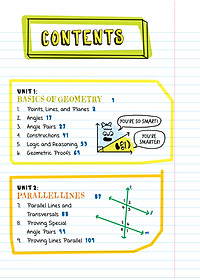 CONTENTS
UNIT 1:
BASICS OF GEOMETRY 1
1. Points, Lines, and Planes 2
2. Angles 17
3. Angle Pairs 27
4. Constructions 41
5. Logic and Reasoning 53
6. Geometric Proofs 69
YOU'RE SO SMART!
YOU'RE SMARTER!
UNIT 2:
PARALLEL LINES 87
7. Parallel Lines and
Transversals 88
8. Proving Special
Angle Pairs 99
9. Proving Lines Parallel 109